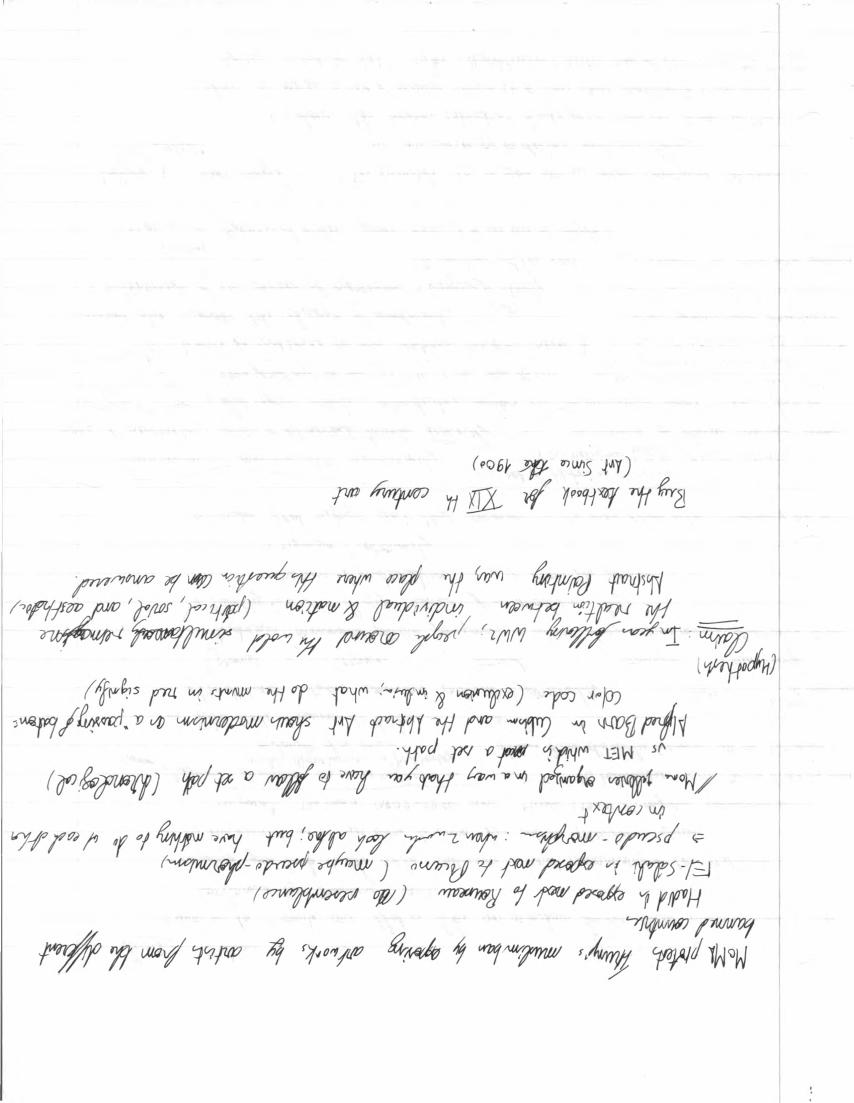 MoMA protests Trump's muslim ban by exposing artworks by artists from the different
banned countries
Hadid is exposed next to Rousseau (no resemblance)
El-Salahi is exposed next to Picasso (maybe pseudo-phormism)
⇒ pseudo-morphism: when 2 works look alike, but have nothing to do w/ each other
in context
// Moma galleries organized in a way that you have to follow a set path (chronological)
vs MET which is not a set path.
Alfred Barr in Cubism and the Abstract Art shows modernism as a "passing of baton"
color code (exclusion & inclusion; what do the mvmts in red signify)
(Hypothesis)
Claim: In years following WW2, people around the world simultaneously reimagine
the realtion between individual & nation (political, social, and aesthetic)
Abstract Painting was the place where this question can be answered.
Buy the textbook for XIX th century art
(Art Since the 1900)